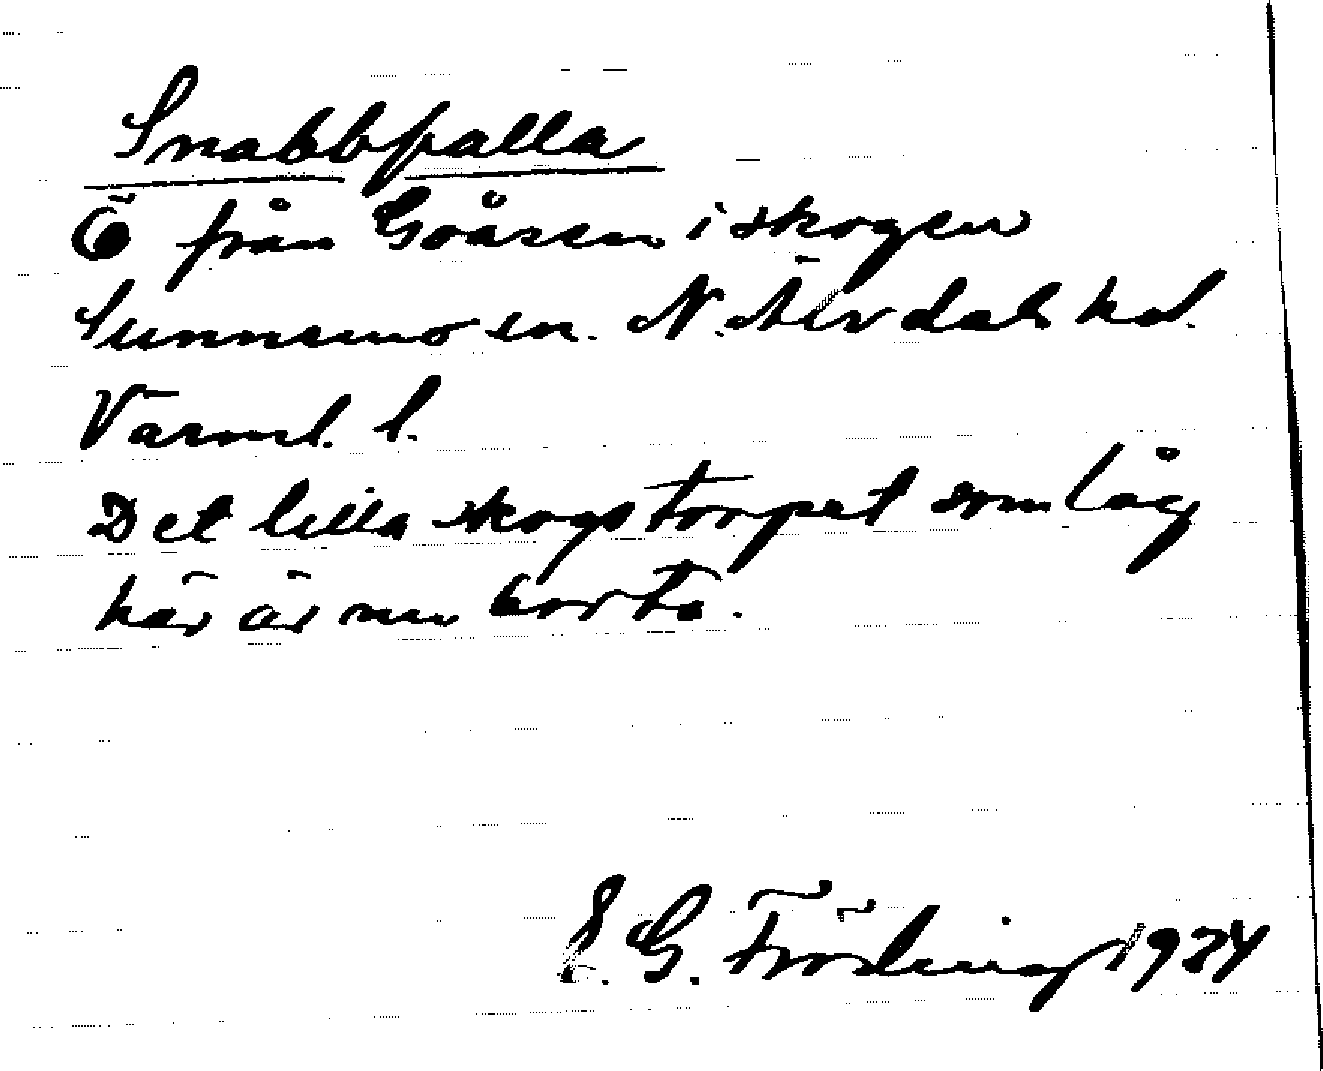 Snabbfalla
Ö från Gråsen i skogen
Sunnemo sn. N. Älvdals hd.
Värml. l.
Det lilla skogstorpet som låg
här är nu borta.
E. G. Fröding 1934